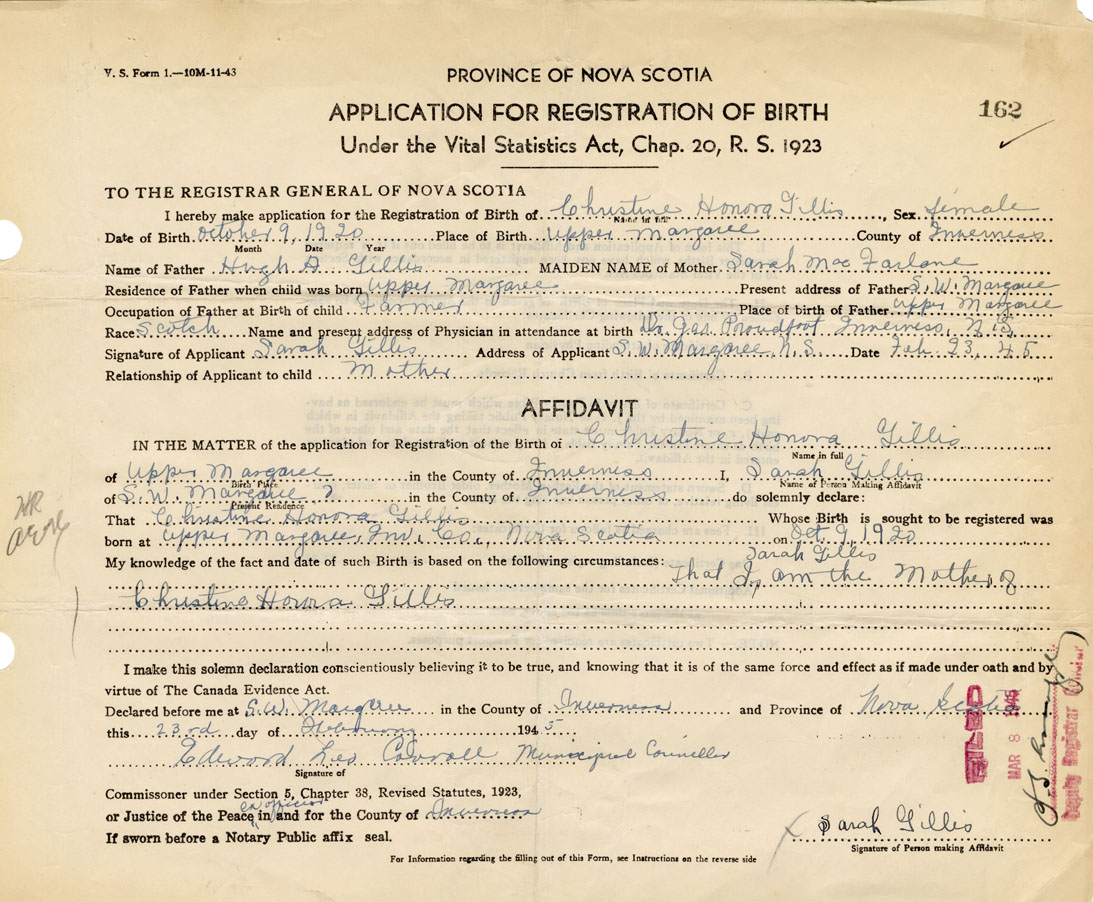 V. S. Form 1.—10M-11-43
PROVINCE OF NOVA SCOTIA
APPLICATION FOR REGISTRATION OF BIRTH
162
Under the Vital Statistics Act, Chap. 20, R. S. 1923
TO THE REGISTRAR GENERAL OF NOVA SCOTIA
I hereby make application for the Registration of Birth of Christine Honora Gillis, Sex female
Name in full
Date of Birth October 9, 1920 Place of Birth Upper Margaree County of Inverness
Month Date Year
Name of Father Hugh D Gillis MAIDEN NAME of Mother Sarah MacFarlane
Residence of Father when child was born Upper Margaree Present address of Father S. W. Margaree
Occupation of Father at Birth of child Farmer Place of birth of Father Upper Margaree
Race Scotch Name and present address of Physician in attendance at birth Dr Jas Proudfoot Inverness, N.S.
Signature of Applicant Sarah Gillis Address of Applicant S. W. Margaree, N.S. Date Feb. 23, 45
Relationship of Applicant to child Mother
AFFIDAVIT
IN THE MATTER of the application for Registration of the Birth of Christine Honora Gillis
Name in full
of Upper Margaree in the County of Inverness I, Sarah Gillis
Birth Place Name of Person Making Affidavit
of S. W. Margaree in the County of Inverness do solemnly declare:
Present Residence
That Christine Honora Gillis Whose Birth is sought to be registered was
born at Upper Margaree, Inv. Co., Nova Scotia on Oct. 9, 1920
My knowledge of the fact and date of such Birth is based on the following circumstances: That I, Sarah Gillis am the Mother of
Christine Honora Gillis
I make this solemn declaration conscientiously believing it to be true, and knowing that it is of the same force and effect as if made under oath and by
virtue of The Canada Evidence Act.
Declared before me at S.W. Margaree in the County of Inverness and Province of Nova Scotia
this 23rd day of February 1945
Edward Leo Municipal Councillor
Signature of
Commissoner under Section 5, Chapter 38, Revised Statutes, 1923,
or Justice of the Peace ex officio in and for the County of Inverness
If sworn before a Notary Public affix seal.
Sarah Gillis
Signature of Person making Affidavit
For Information regarding the filling out of this Form, see Instructions on the reverse side
FILED
MAR 8 1945
Deputy Registrar